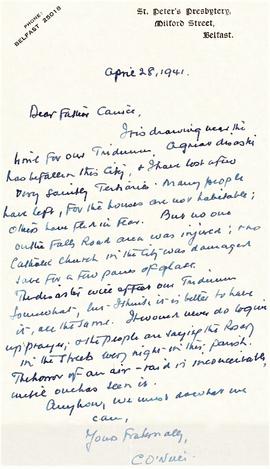 PHONE:
BELFAST 25018
St. Peter's Presbytery,
Milford Street,
Belfast.
April 28, 1941.
Dear Father Canice,
It is drawing near the
time for our Triduum. A great disaster
has befallen this City, & I have lost a few
very saintly Tertiaries. Many people
have left, for the houses are not habitable;
others have fled in fear. But no one
on the Falls Road area was injured; & no
Catholic Church in the City was damaged
save for a few panes of glass.
The disaster will affect our Triduum
somewhat, but I think it is better to have
it, all the same. It would never do to give
up prayer, & the people are saying the Rosary
in the streets every night in this parish.
The horror of an air-raid is inconceivable,
until one has seen it.
Anyhow, we must do what we
can,
Yours Fraternally,
C O'Neill